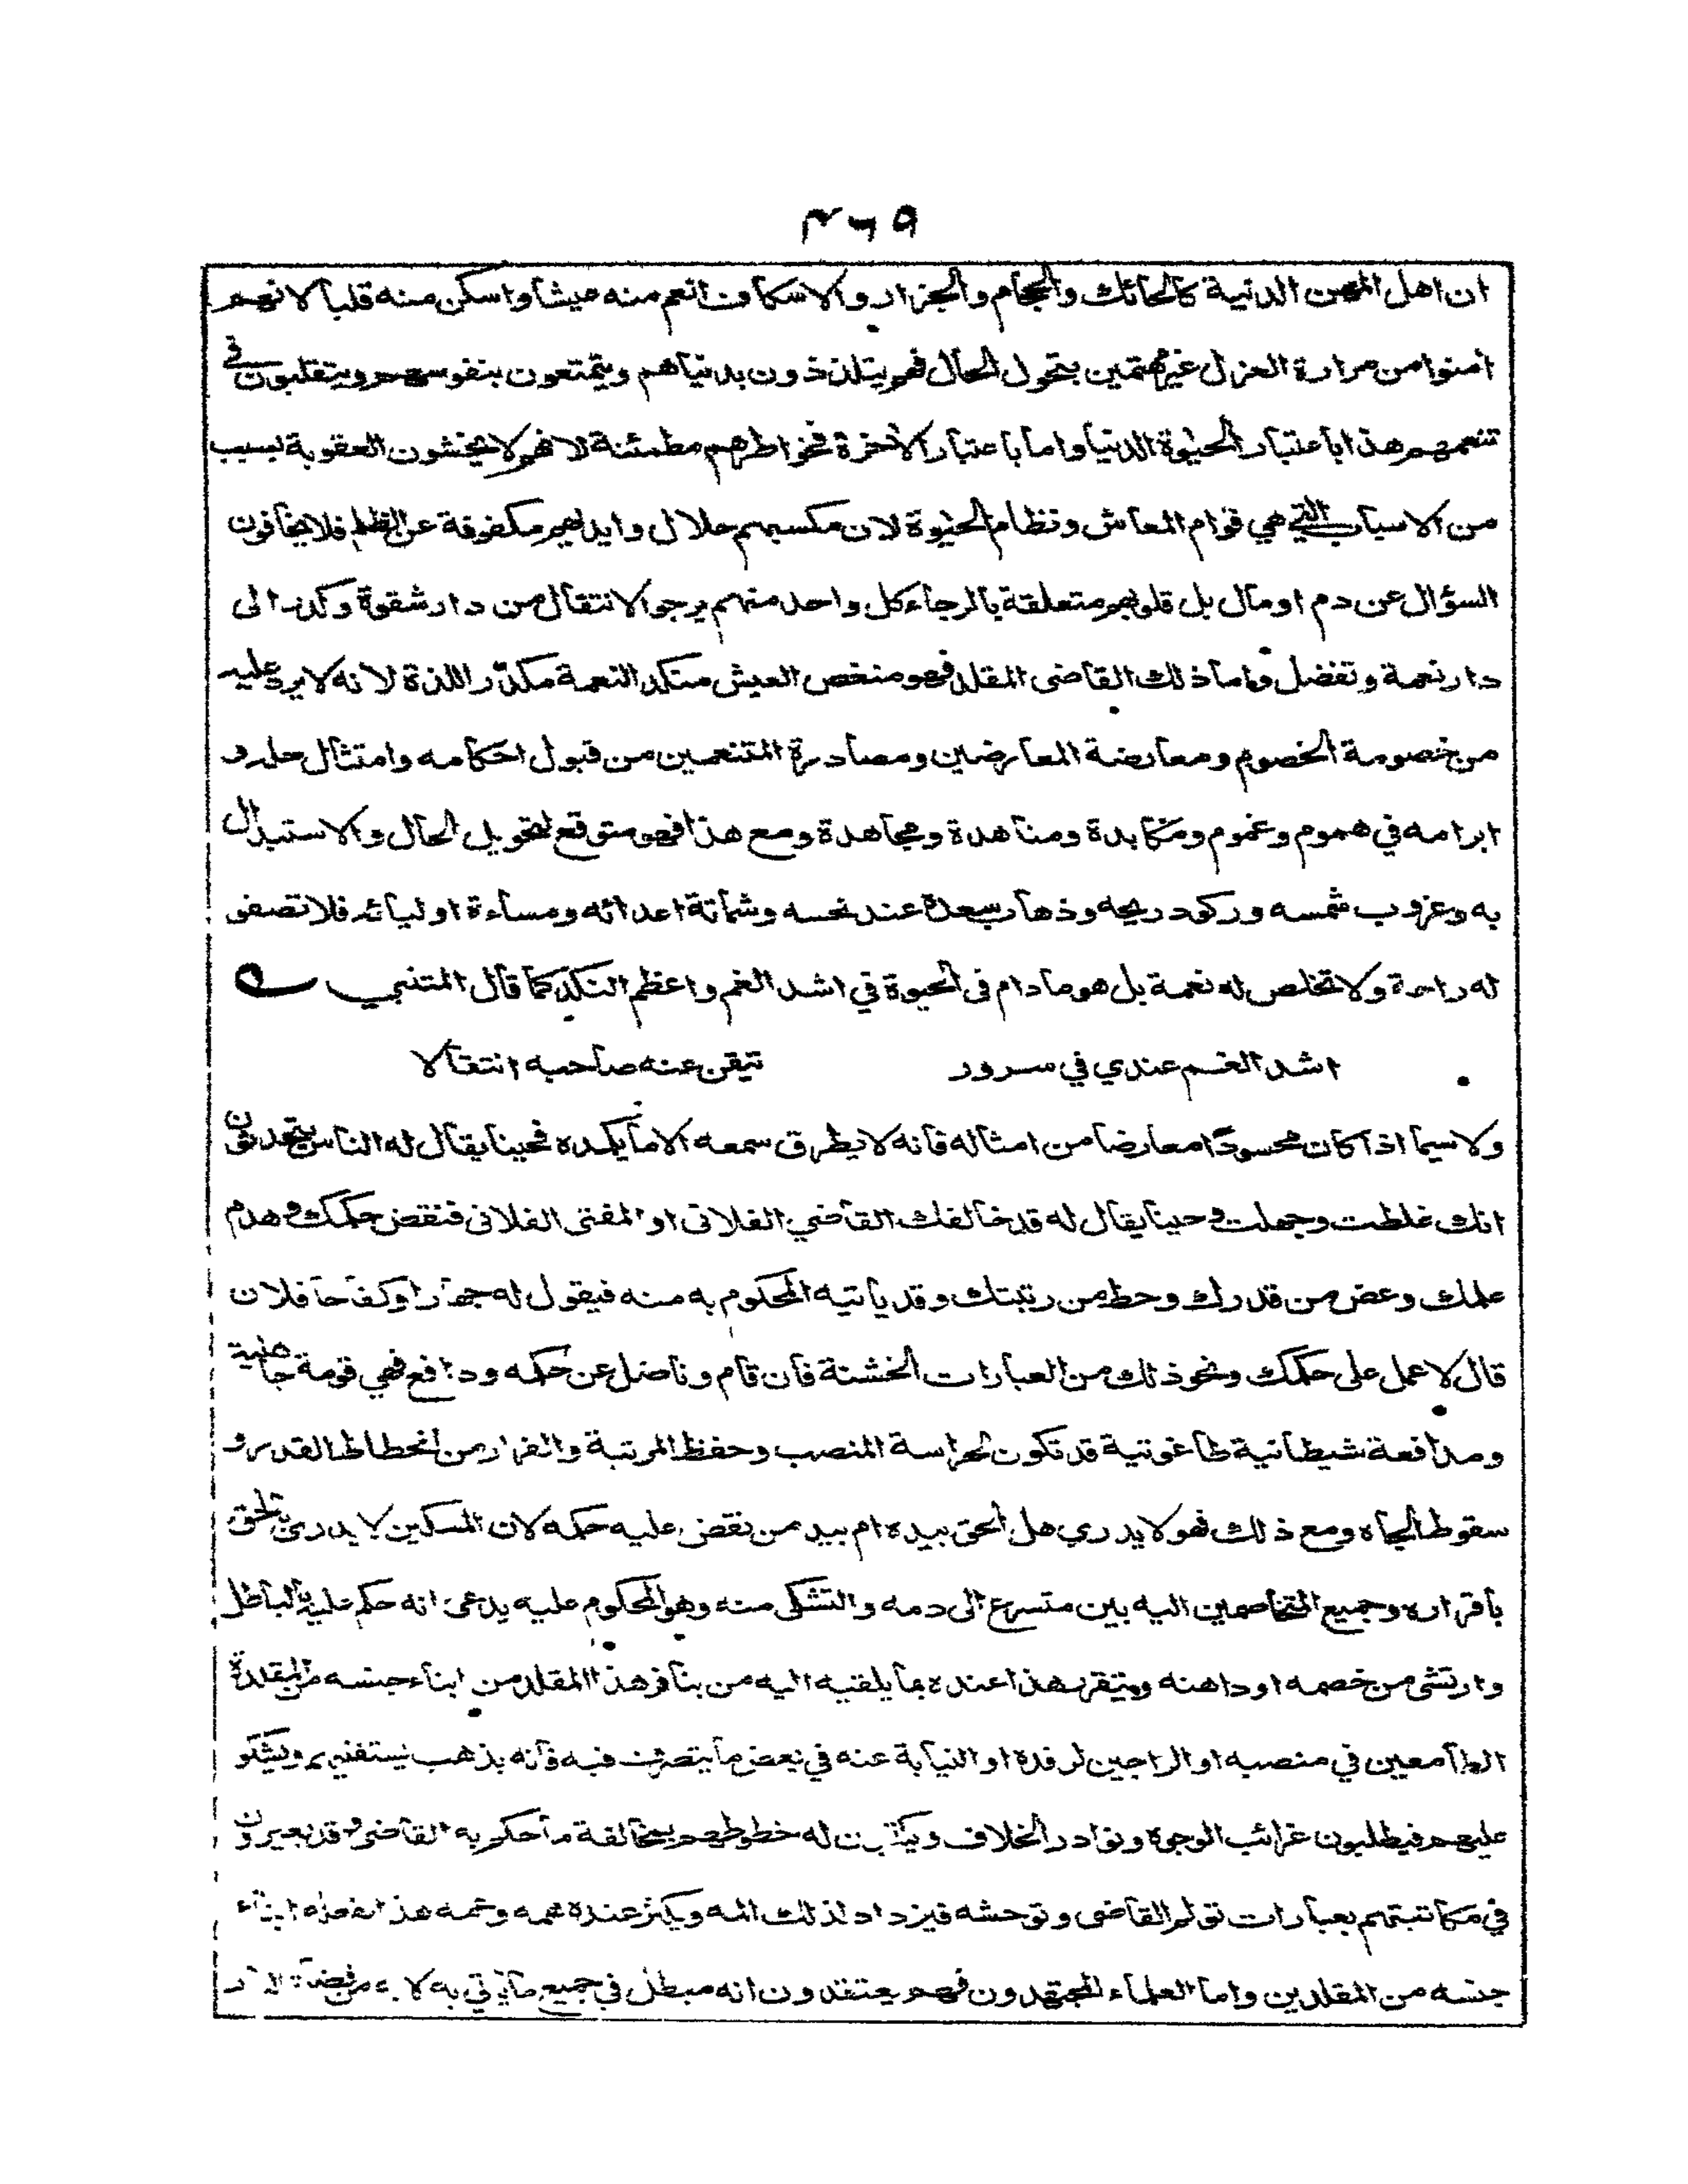 ٣٦٩
ان اهل المهن الدنية كالحائك والحجام والجزار والاسكاف انعم منه عيشا واسكن منه قلبا لانهم
امنوا من مرارة العزل غير مهتمين بتحول الحال فهم يتلذذون بدنياهم ويتمتعون بنفوسهم ويتقلبون في
تنعمهم هذا باعتبار الحيوة الدنيا واما باعتبار الآخرة فخواطرهم مطمئنة لانهم لا يخشون العقوبة بسبب
من الاسباب التي هي قوام المعاش ونظام الحيوة لان مكسبهم حلال وايديهم مكفوفة عن الظلم فلا يخافون
السؤال عن دم او مال بل قلوبهم متعلقة بالرجاء كل واحد منهم يرجو الانتقال من دار شقوة وكدر الى
دار نعمة وتفضل واما ذلك القاضى المقلد فهو منغص العيش منكد النعمة مكدّر اللذة لانه لا يرد عليه
من خصومة الخصوم ومعارضة المعارضين ومصادرة المتنعمين من قبول احكامه وامتثال حله و
ابرامه في هموم وغموم ومكابدة ومناهدة ومجاهدة ومع هذا فهو متوقع لتحويل الحال والاستبدال
به وعزوب شمسه وركود ريحه وذهاب سعده عند نحسه وشماتة اعدائه ومساءة اوليائه فلا تصفو
له راحة ولا تخلص له نعمة بل هو ما دام فى الحيوة في اشد الغم واعظم النكد كما قال المتنبي
اشد الغم عندي في سرور تيقن عنه صاحبه انتقالا
ولا سيما اذا كان محسودًا معارضا من امثاله فانه لا يطرق سمعه الا ما يكمده فحينا يقال له الناس يتحدثون
انك غلطت وجهلت وحينا يقال له قد خالفك القاضي الفلانى او المفتى الفلانى فنقض حكمك وهدم
علمك وغض من قدرك وحط من رتبتك وقد ياتيه المحكوم به منه فيقول له جهارا وكفاحا فلان
قال لا عمل على حكمك ونحو ذلك من العبارات الخشنة فان قام وناضل عن حكمه ودافع فهي قومة جاهلية
ومدافعة شيطانية طاغوتية قد تكون لحراسة المنصب وحفظ المرتبة والفرار من انحطاط القدر و
سقوط الجاه ومع ذلك فهو لا يدري هل الحق بيده ام بيد من نقض عليه حكمه لان المسكين لا يدرى بالحق
باقراره وجميع المتخاصمين اليه بين متسرع الى دمه والتشكى منه وهو المحكوم عليه يدعى انه حكم عليه بالباطل
وارتشى من خصمه او داهنه ويتقرر هذا عنده بما يلقيه اليه من ينافر هذا المقلد من ابناء جنسه من المقلدة
الطامعين في منصبه او الراجين لرفده او النيابة عنه في بعض ما يتصرف فيه فانه يذهب يستفتيهم ويشكو
عليهم فيطلبون غرائب الوجوه ونوادر الخلاف ويكتبون له خطوطهم بمخالفة ما حكم به القاضى وقد يعبرون
في مكاتبتهم بعبارات تولم القاضى وتوحشه فيزداد لذلك المه ويكثر عنده همه وغمه هذا يفعله ابناء
جنسه من المقلدين واما العلماء المجتهدون فهم يعتقدون انه مبطل في جميع ما ياتي به لانه من قضاة النار